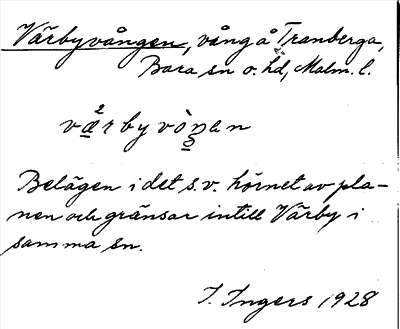 Värbyvången, vång å Tranberga,
Bara sn o. hd, Malm. l.
væ²rbyvòŋan
Belägen i det s.v. hörnet av pla-
nen och gränsar intill Värby i
samma sn.
I. Ingers 1928